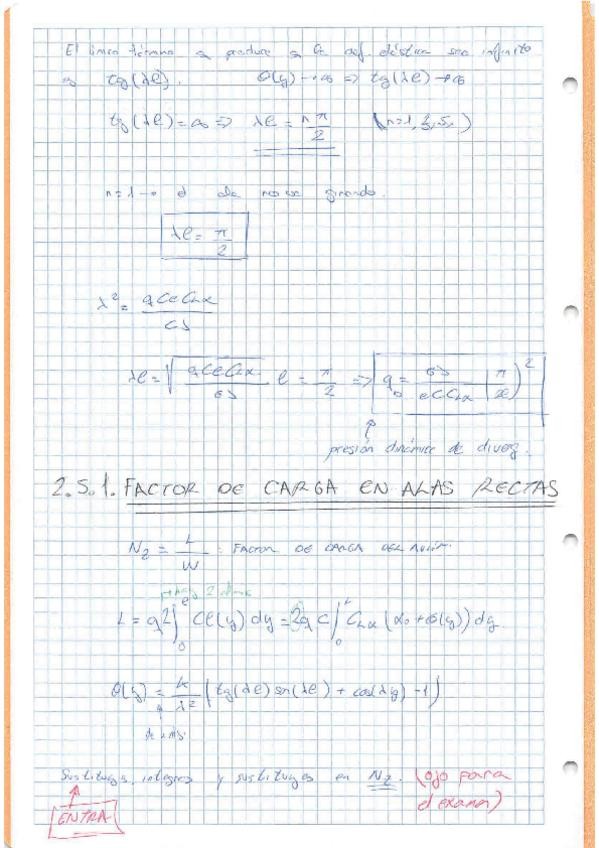 El único término q produce q la def. elástica sea infinito
es tg(λl). θ(y) → ∞ => tg(λl) → ∞
tg(λl) = ∞ => λl = n π/2 (n=1,3,5..)
n=1 → el ala no se girando.
λl = π/2
λ² = qCeCLα / GJ
λl = √(qCeCLα / GJ) l = π/2 => q_D = GJ / eCCLα (π/2l)²
presión dinámica de diverg.
2.5.1. FACTOR DE CARGA EN ALAS RECTAS
Nz = L/W : FACTOR DE CARGA DEL AVIÓN.
hay 2 alas
L = q2∫₀^l Cl(y) dy = 2qC∫₀^l CLα (α₀ + θ(y)) dy
θ(y) = K/λ² (tg(λl) sen(λl) + cos(λy) - 1)
de antes
Sustituyes, integras y sustituyes en Nz. (ojo para
el examen)
ENTRA